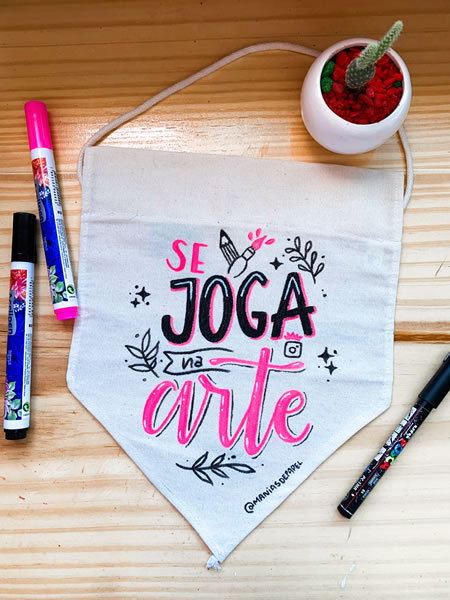 SE
JOGA
na
arte
@MANIASDEPAPEL